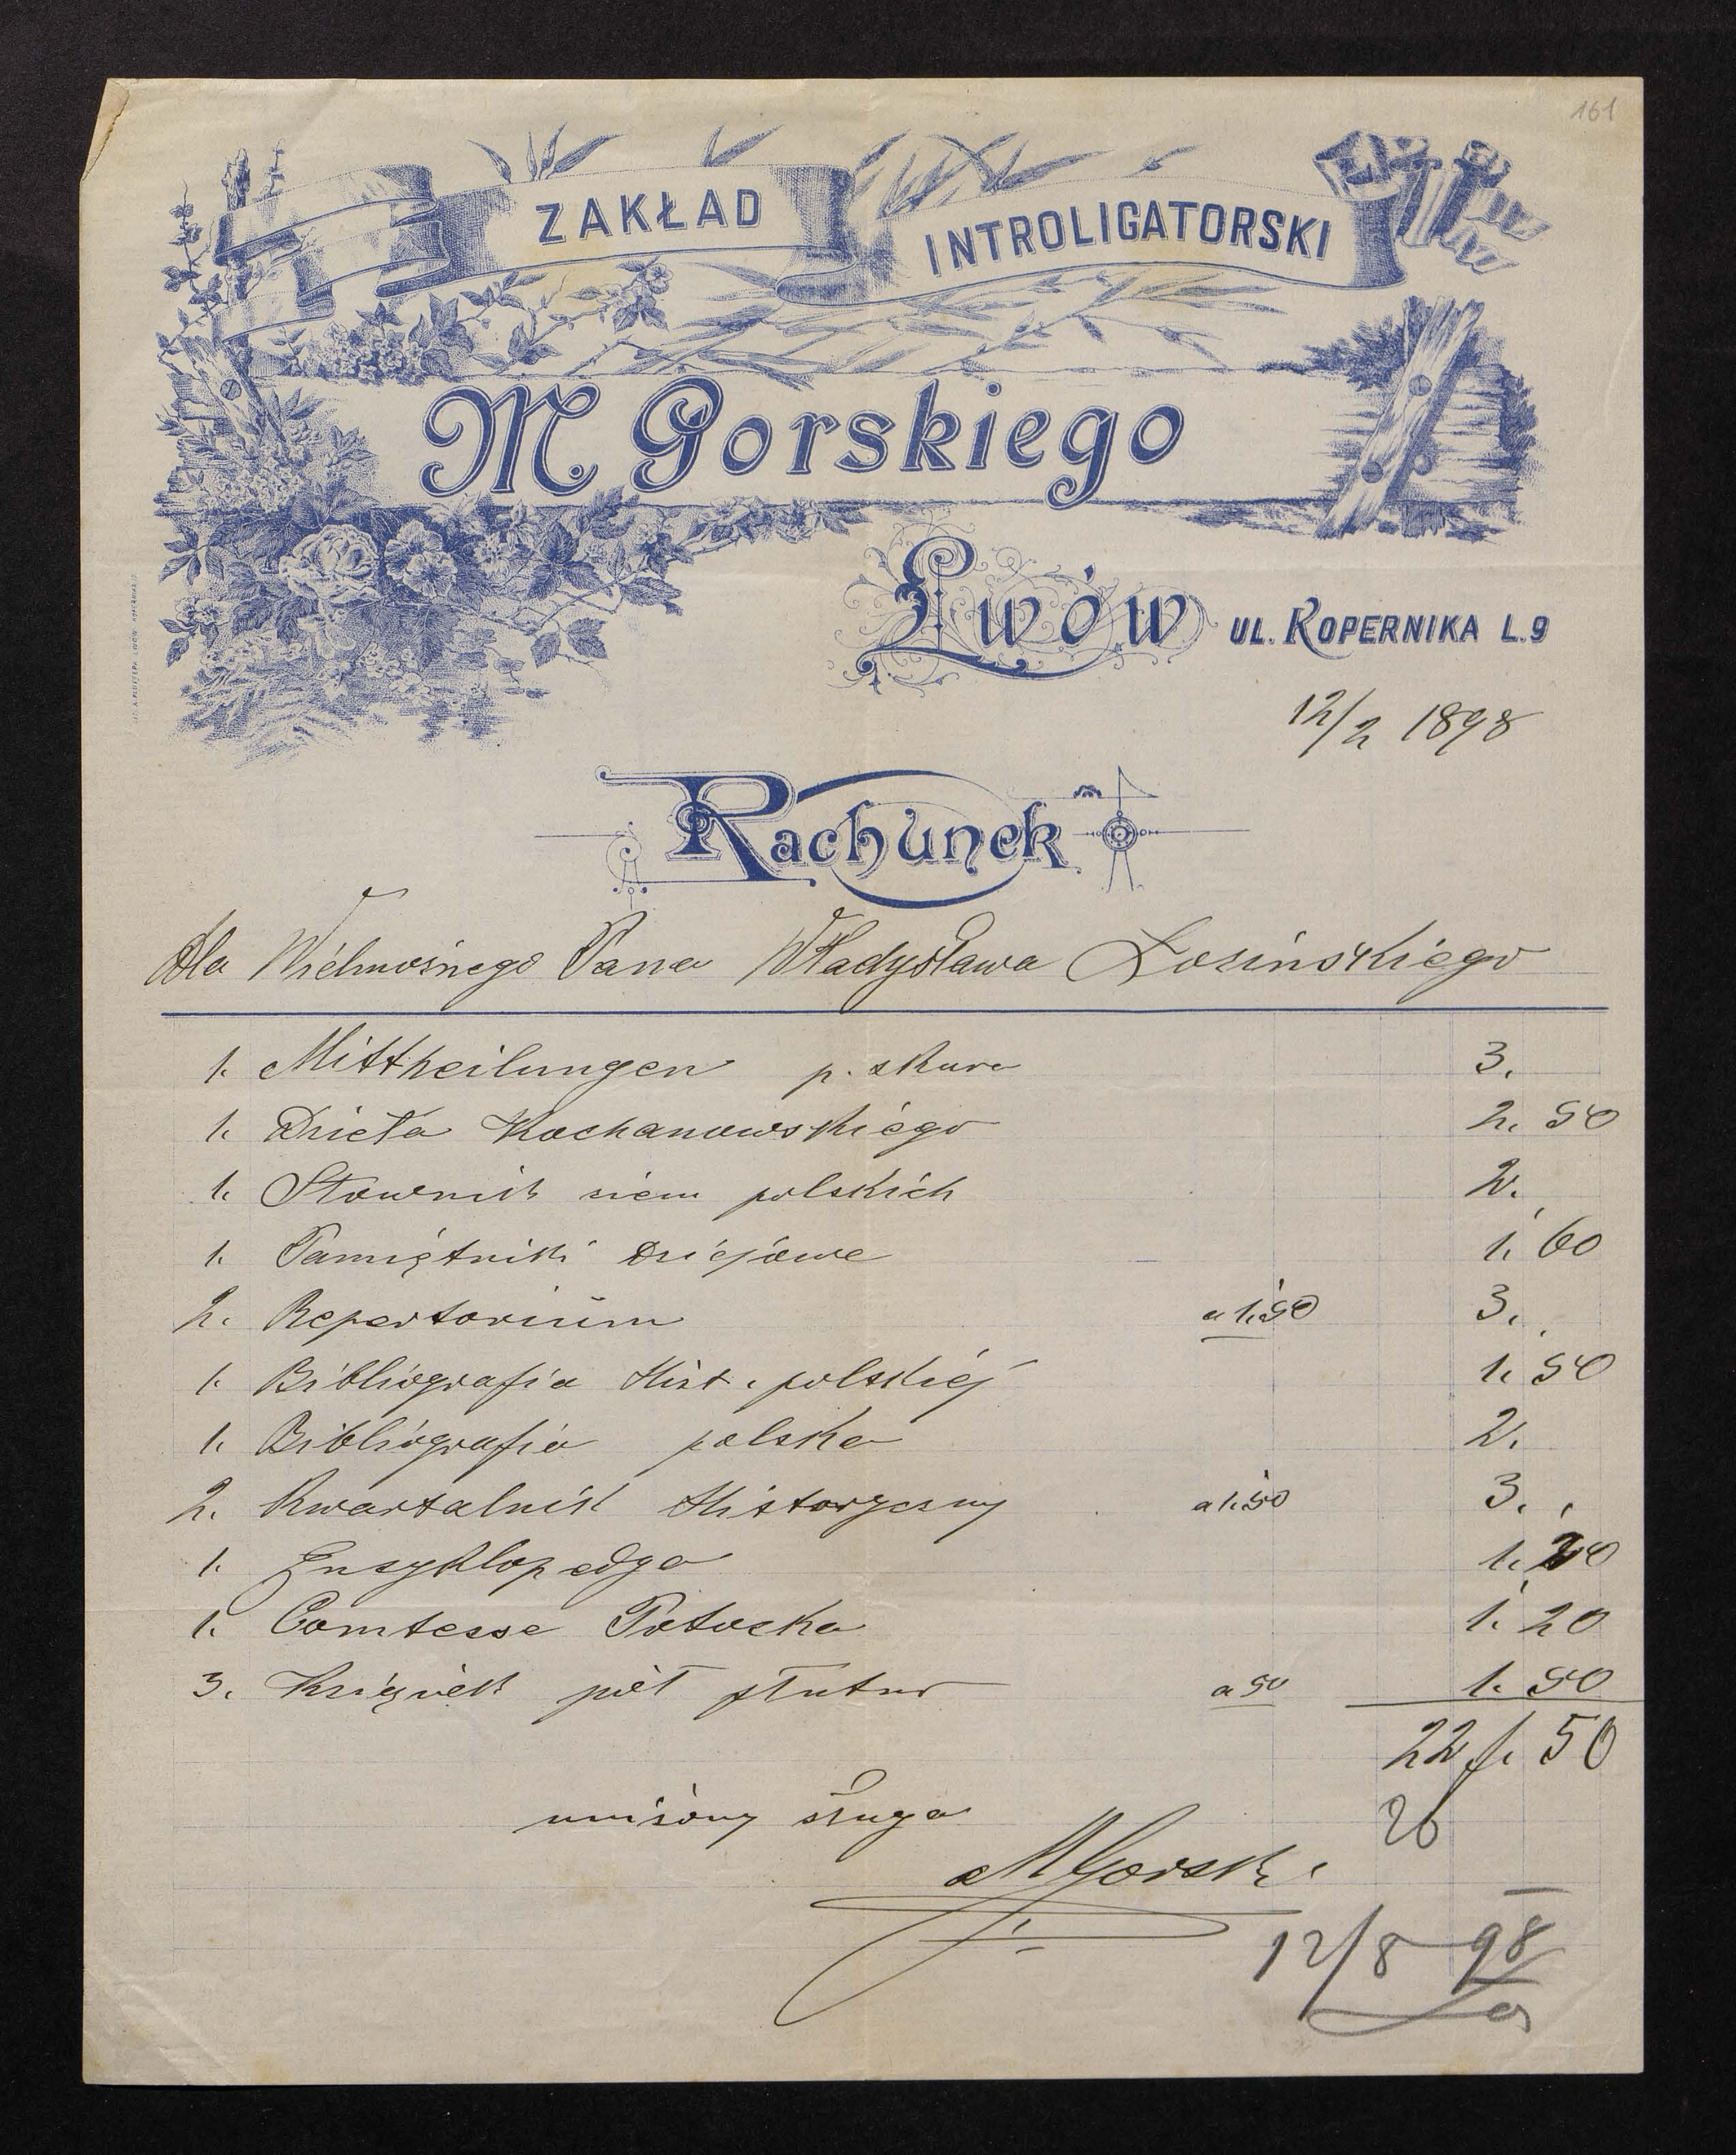 161
ZAKŁAD INTROLIGATORSKI
M Gorskiego
Lwów UL. KOPERNIKA L.9
12/2 1898
Rachunek
dla Wielmożnego Pana Władysława Łozińskiego
1. Mittheilungen p. skura 3.
1. Dzieła Kochanowskiego 2. 50
1. Słownik ziem polskich 2.
1. Pamiętniki Dziejowe 1. 60
2. Repertorium a 1.50 3.
1. Bibliografia Hist. polskiej 1. 50
1. Bibliografia polska 2.
2. Kwartalnik Historyczny a 1.50 3.
1. Encyklopedya 1. 20
1. Comtesse Potocka 1. 20
3. Książek pół płutno a 50 1. 50
22 f. 50
uniżony sługa 26
MGorski
12/8 98